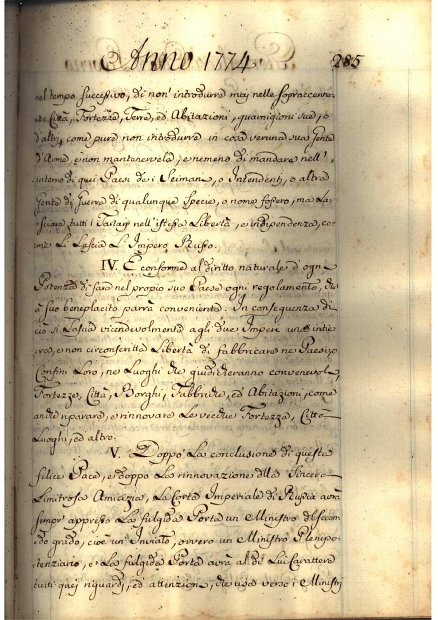 Anno 1774 285
nel tempo successivo, di non introdurrà mai nelle sopraccenna-
te Città, Fortezze, Terre, ed Abitazioni, guarnigioni sue, o
d'altri, come pure non introdurrà in esse veruna sua Gente
d'Arme, e non mantenervela, e nemeno di mandare nell'
interno di quei Paesi de i Seimani, o Intendenti, o altra
Gente di Guerra di qualunque specie, o nome fossero, ma la-
sciare tutti i Tartari nell'istessa Libertà, e indipendenza, co-
me li Lascia L'Impero Russo.
IV. È conforme al diritto naturale d'ogni
Potenza di fare nel propio suo Paese ogni regolamento, che
a suo beneplacito parrà conveniente. In conseguenza di
ciò si Lascia vicendevolmente agli due Imperi una intie-
ra, e non circonscritta Libertà di fabbricare ne Paesi, e
Confini Loro, ne Luoghi che giudicheranno convenevoli,
Fortezze, Città, Borghi, Fabbriche, ed Abitazioni, come
anche riparare, e rinnovare le vecchie Fortezze, Città
Luoghi, ed altro.
V. Doppo La conclusione di questa
felice Pace, e doppo La rinnovazione della Sincera
Limitrofa Amicizia, La Corte Imperiale di Russia avrà
sempre appresso La fulgida Porta un Ministro del secon-
do grado, cioè un Inviato, ovvero un Ministro Plenipo-
tenziario, e La fulgida Porta avrà al di Lui Carattere
tutti quei riguardi, ed attenzioni, che usa verso i Ministri